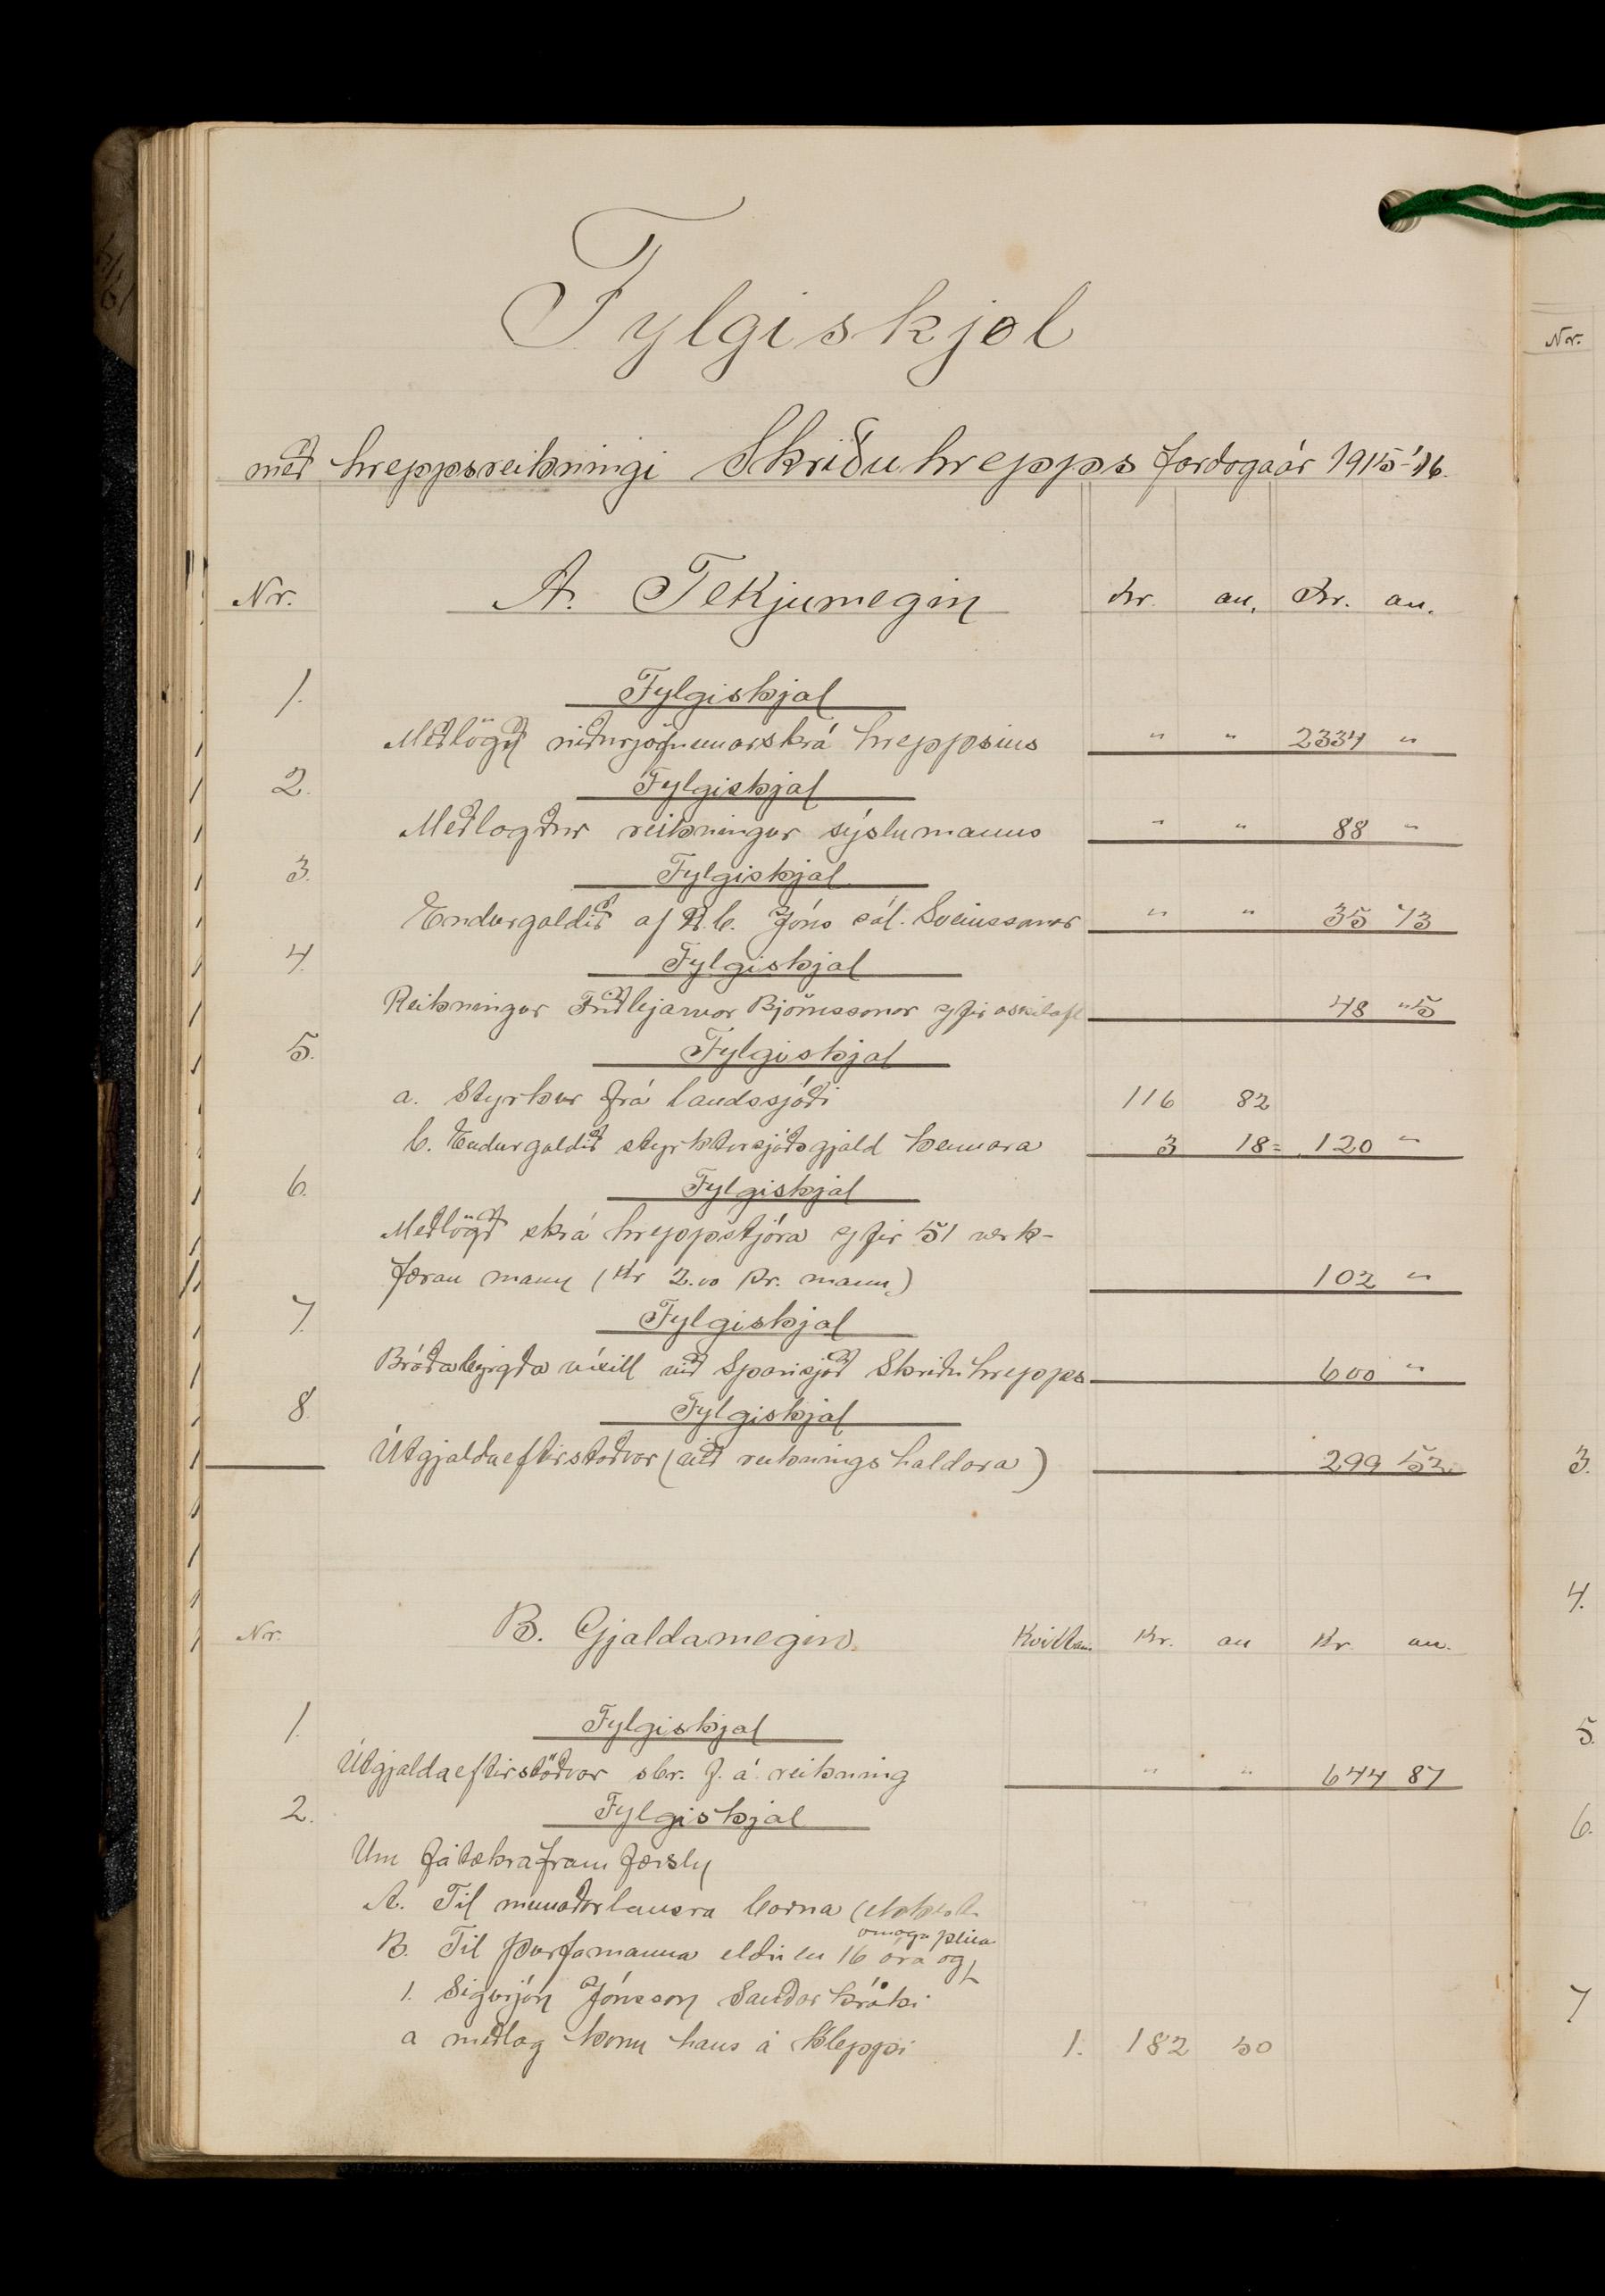 Fylgiskjöl
með hreppsreikningi Skriðuhrepps fardagaár 1915-'16.
Nr. A. Tekjumegin Kr. au. Kr. au.
1. Fylgiskjal
Meðlögð niðurjöfnunarskrá hreppsins " " 2334 "
2. Fylgiskjal
Meðlagður reikningur sýslumanns " " 88 "
3. Fylgiskjal
Endurgoldið af D.b. Jóns sál. Sveinssonar " " 35 73
4. Fylgiskjal
Reikningur Friðbjarnar Björnssonar yfir óskilafé 48 "5
5. Fylgiskjal
a. Styrkur frá landssjóði 116 82
b. Endurgoldið styrktarsjóðsgjald kennara 3 18 = 120 "
6. Fylgiskjal
Meðlögð skrá hreppstjóra yfir 51 verk-
færan mann (Kr 2.00 pr. mann.) 102 "
7. Fylgiskjal
Bráðabyrgða víxill við Sparisjóð Skriðuhrepps 600 "
8. Fylgiskjal
Útgjaldaeftirstöðvar (við reikningshaldara) 299 52
Nr. B. Gjaldamegin. Kvittan. Kr. au Kr. au.
1. Fylgiskjal
Útgjaldaeftirstöðvar sbr. f. á. reikning " " 644 87
2. Fylgiskjal
Um fátækraframfærslu
A. Til munaðarlausra barna " "
B. Til þurfamanna eldri en 16 ára og
ómaga þeirra
1. Sigurjón Jónsson Sauðárkróki
a meðlag konu hans á Kleppi 1. 182 50
Nr.
3.
4.
5.
6.
7